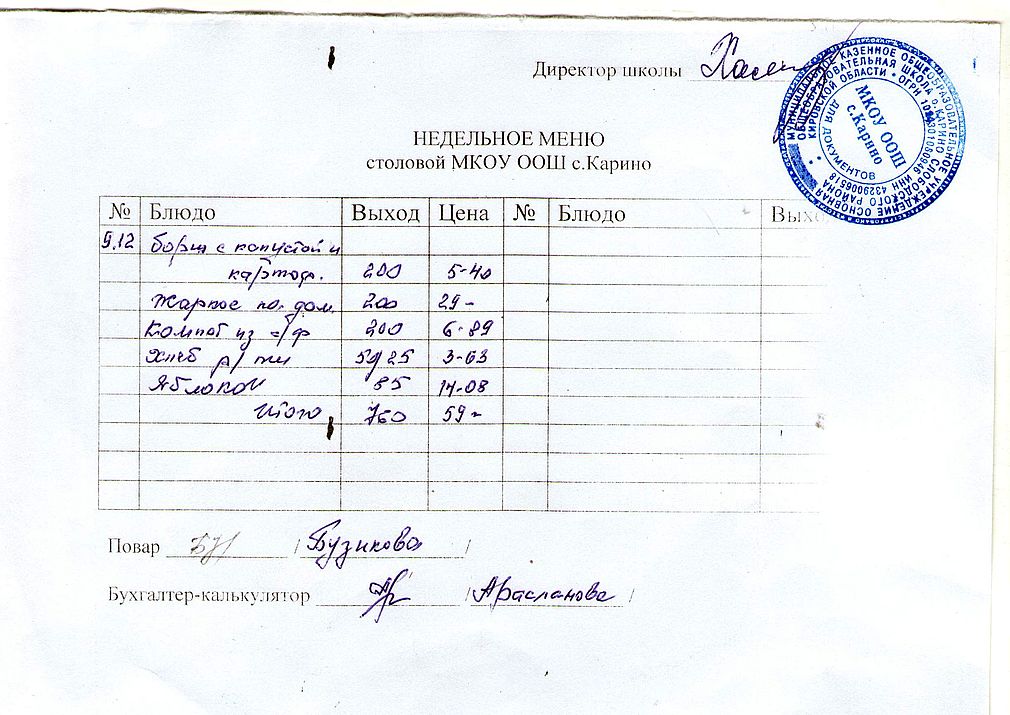 Директор школы
МУНИЦИПАЛЬНОЕ КАЗЕННОЕ ОБЩЕОБРАЗОВАТЕЛЬНОЕ УЧРЕЖДЕНИЕ ОСНОВНАЯ
ОБЩЕОБРАЗОВАТЕЛЬНАЯ ШКОЛА с.КАРИНО СЛОБОДСКОГО РАЙОНА
КИРОВСКОЙ ОБЛАСТИ • ОГРН ИНН 4329006518
ДЛЯ ДОКУМЕНТОВ
МКОУ ООШ
с.Карино
НЕДЕЛЬНОЕ МЕНЮ
столовой МКОУ ООШ с.Карино
№ Блюдо Выход Цена № Блюдо Вых
9.12 борщ с капустой и
картоф. 200 5-40
Жаркое по. дом. 200 29-
Компот из с/ф 200 6-89
Хлеб р/пш 50/25 3-63
Яблоко 85 14-08
Итого 760 59-
Повар / Бузикова /
Бухгалтер-калькулятор / Арасланова /